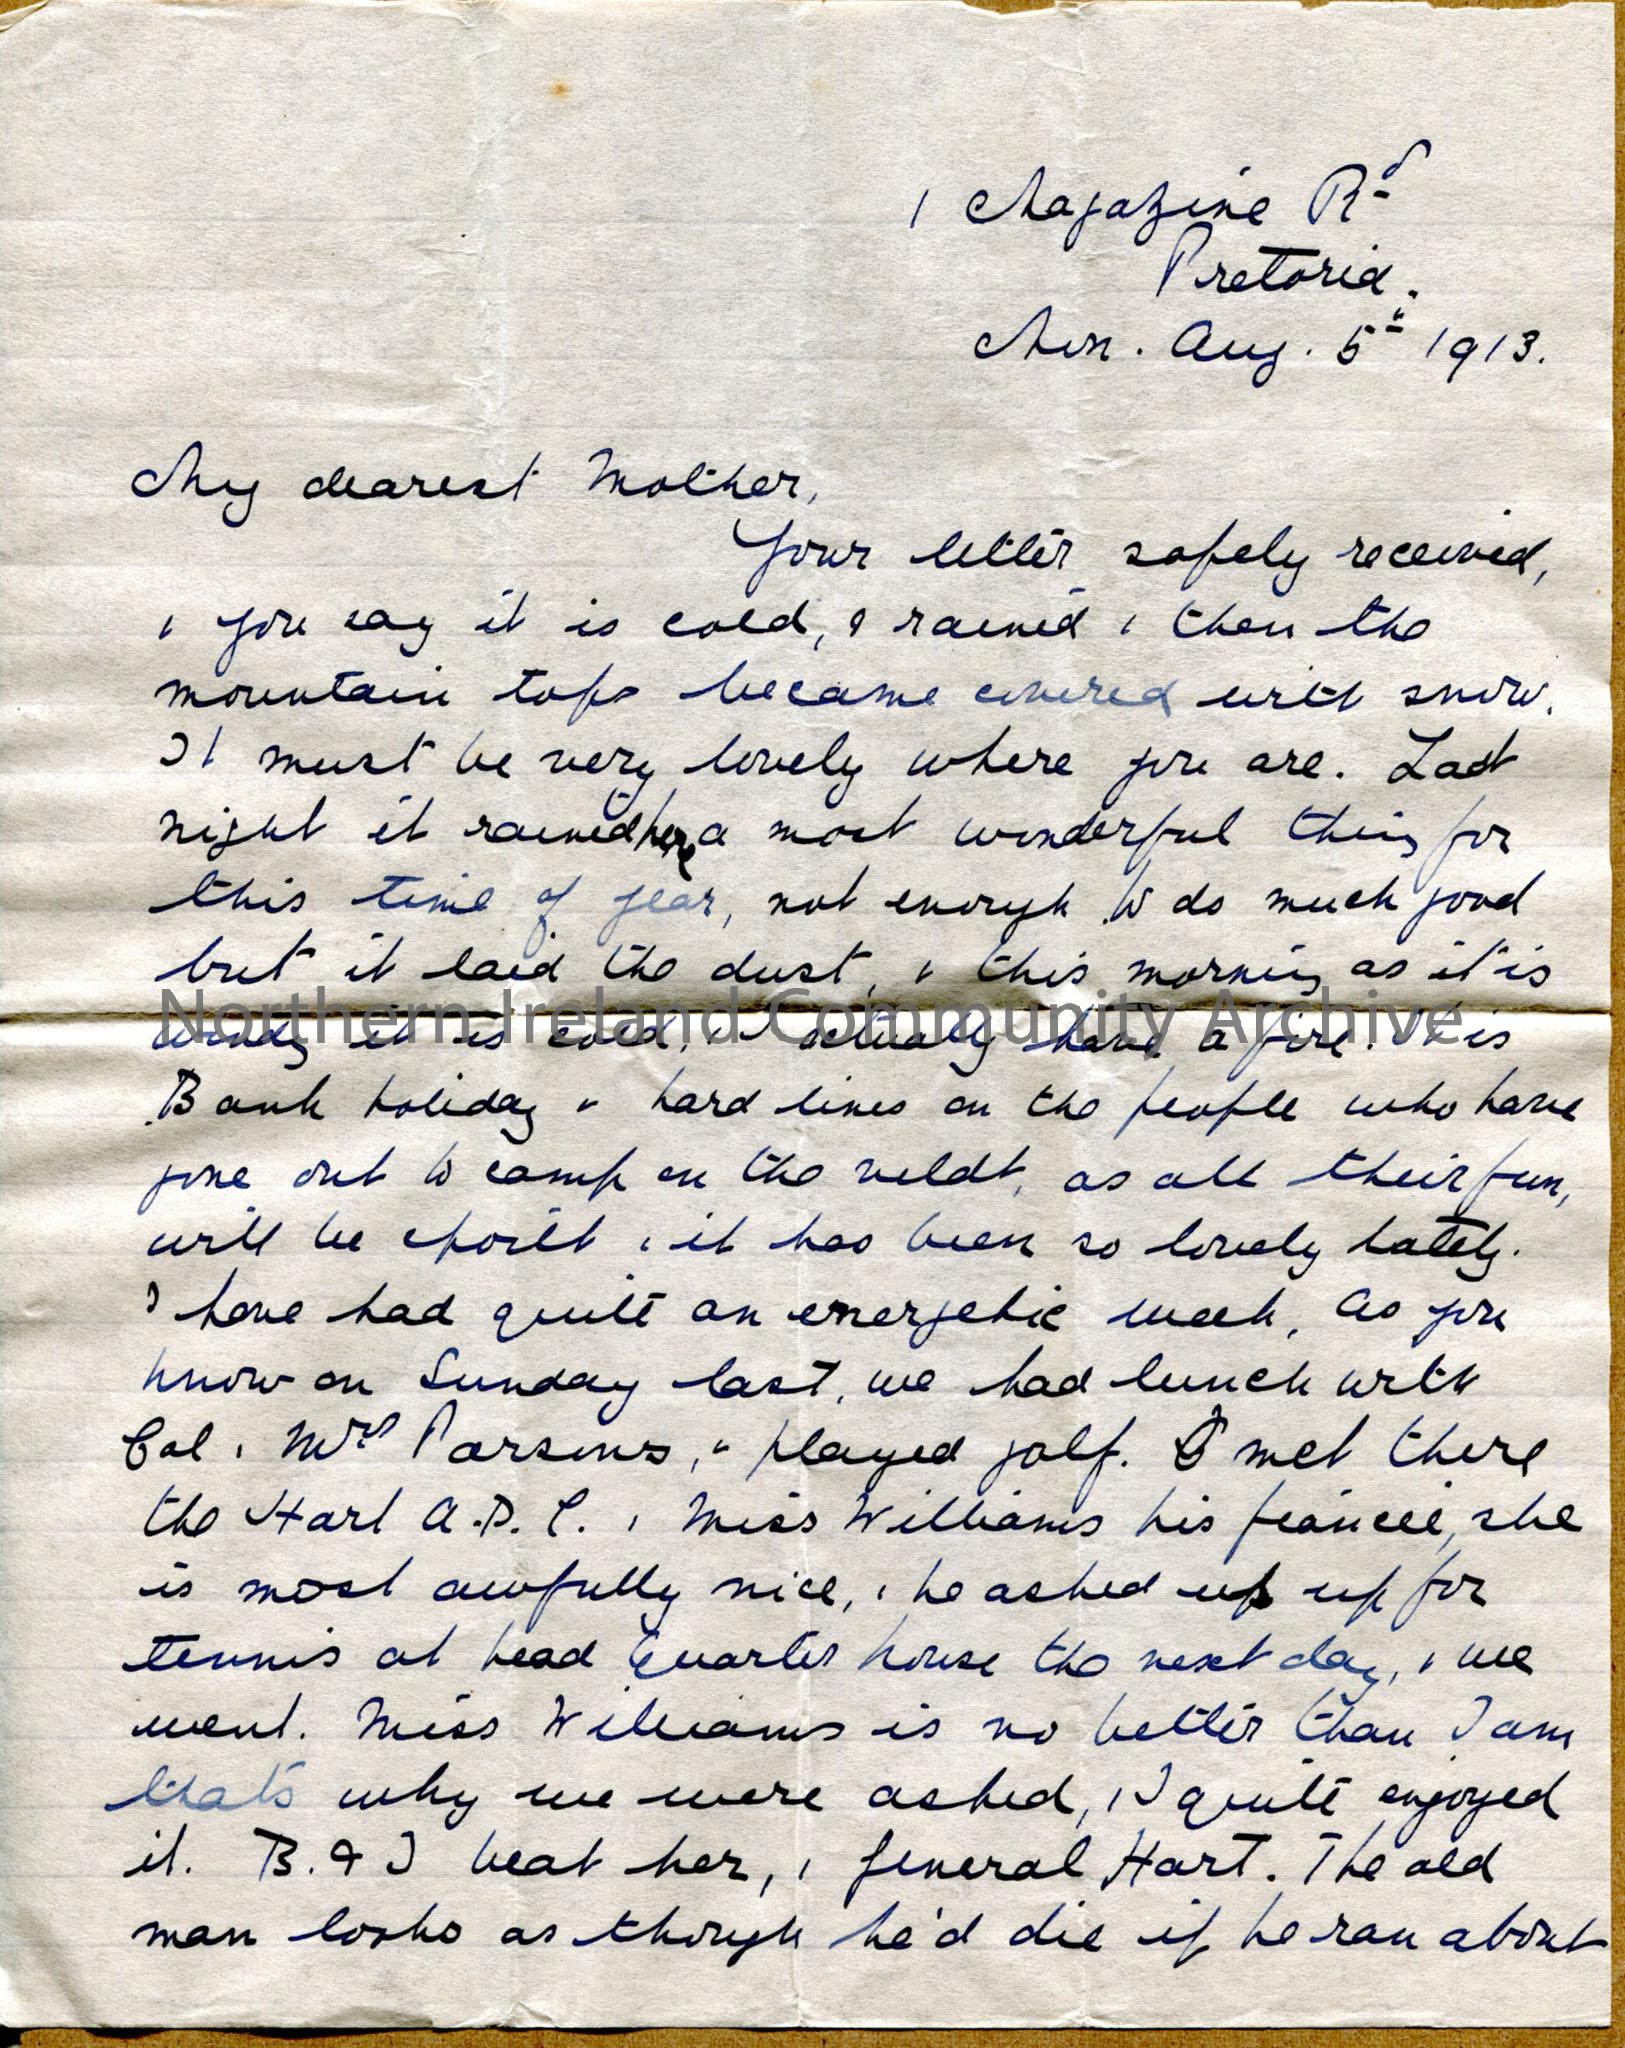 1 Magazine Rd
Pretoria.
Mon. Aug. 5th 1913.
My dearest Mother,
Your letter safely received,
& you say it is cold, & rained & then the
mountain tops became covered with snow.
It must be very lovely where you are. Last
night it rained here a most wonderful thing for
this time of year, not enough to do much good
but it laid the dust, & this morning as it is
windy it is cold, & I actually have a fire. It is
Bank holiday & hard lines on the people who have
gone out to camp on the veldt, as all their fun,
will be spoilt & it has been so lovely lately.
I have had quite an energetic week, as you
know on Sunday last, we had lunch with
Col & Mrs Parsons, & played golf. I met there
the Hart A.D.C. & Miss Williams his fiancée, she
is most awfully nice, & he asked us up for
tennis at head quarter house the next day, & we
went. Miss Williams is no better than I am
thats why we were asked, & I quite enjoyed
it. B. & I beat her, & General Hart. The old
man looks as though he'd die if he ran about
Northern Ireland Community Archive